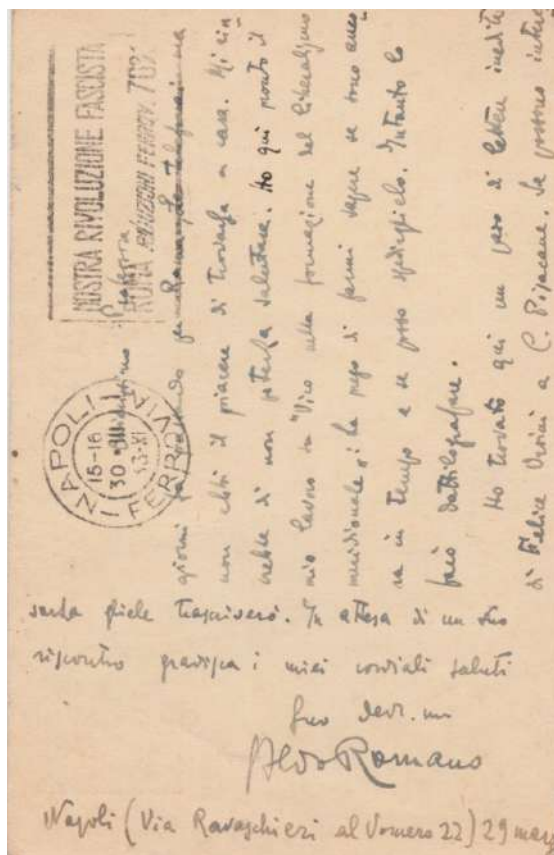 MOSTRA RIVOLUZIONE FASCISTA
ROMA RIDUZIONI FERROV. 70%
NAPOLI FERROVIA
15-16
30 III
33-XI
Professore
giorni fa per Roma Le telefonai ma
non ebbi il piacere di trovarla a casa. Mi rin-
crebbe di non poterla salutare. Ho qui pronto il
mio lavoro su "Vico nella formazione del liberalismo
meridionale": La prego di farmi sapere se sono anco-
ra in tempo e se posso spedirglielo. Intanto lo
farò dattilografare.
Ho trovato qui un paio di lettere inedite
di Felice Orsini a C. Pisacane. Se possono
gliele trascriverò. In attesa di un suo
riscontro gradisca i miei cordiali saluti
Suo dev.mo
Aldo Romano
Napoli (Via Ravaschieri al Vomero 22) 29